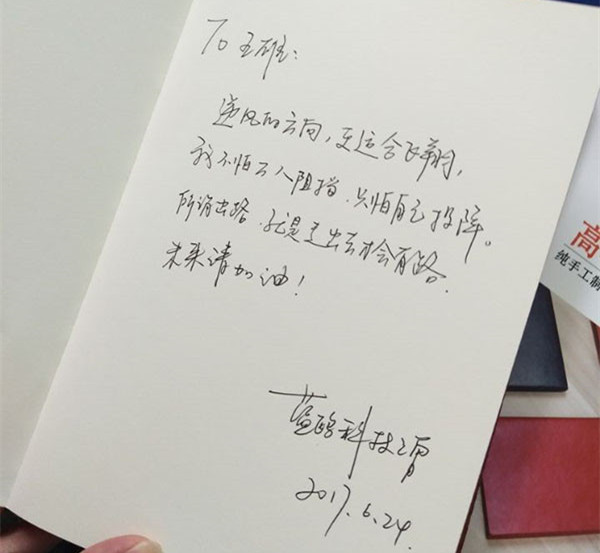 To 王雄:
逆风的方向,更适合飞翔,
我不怕万人阻挡,只怕自己投降。
所谓出路,就是走出去才会有路.
未来请加油!
蓝鸥科技
2017.6.24.
高
纯手工制